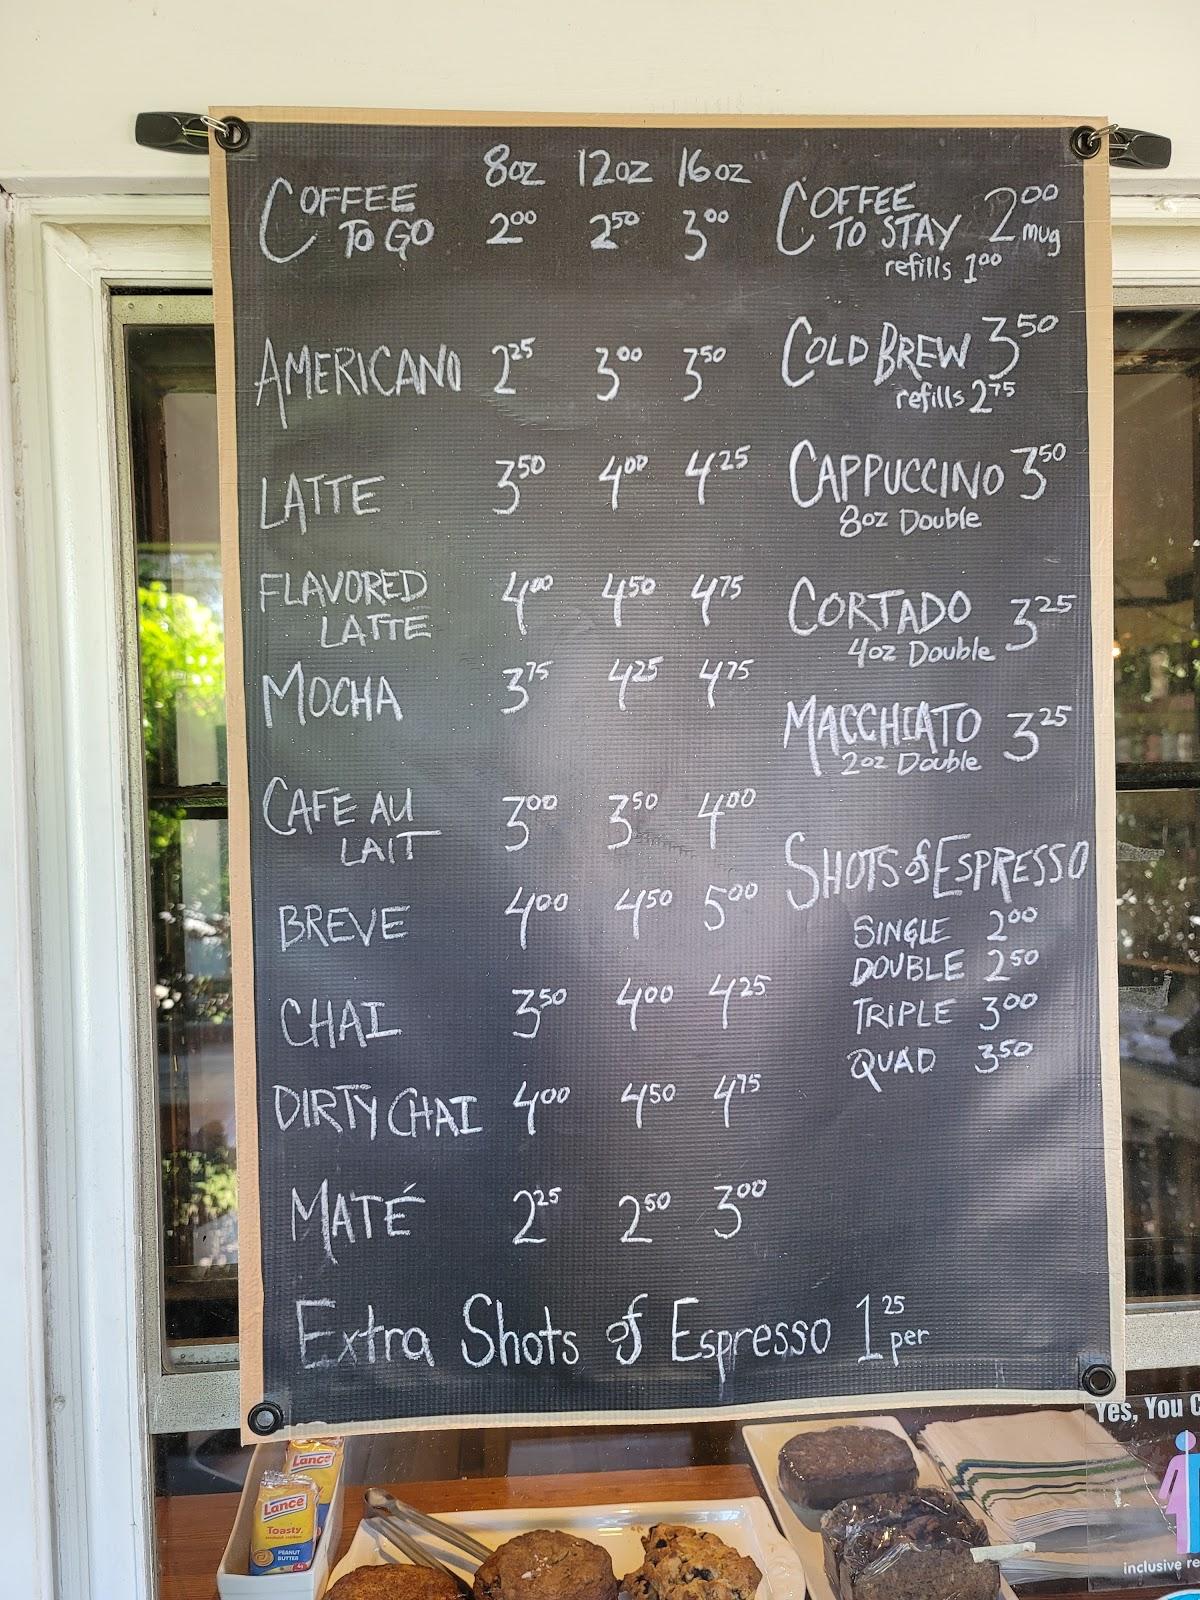 8oz 12oz 16oz
COFFEE TO GO 2.00 2.50 3.00
AMERICANO 2.25 3.00 3.50
LATTE 3.50 4.00 4.25
FLAVORED LATTE 4.00 4.50 4.75
MOCHA 3.75 4.25 4.75
CAFE AU LAIT 3.00 3.50 4.00
BREVE 4.00 4.50 5.00
CHAI 3.50 4.00 4.25
DIRTY CHAI 4.00 4.50 4.75
MATÉ 2.25 2.50 3.00
COFFEE TO STAY 2.00 mug
refills 1.00
COLD BREW 3.50
refills 2.75
CAPPUCCINO 3.50
8oz Double
CORTADO 3.25
4oz Double
MACCHIATO 3.25
2oz Double
SHOTS of ESPRESSO
SINGLE 2.00
DOUBLE 2.50
TRIPLE 3.00
QUAD 3.50
Extra Shots of Espresso 1.25 per
Lance
Lance
Toasty
PEANUT
BUTTER
Yes, You C
inclusive re